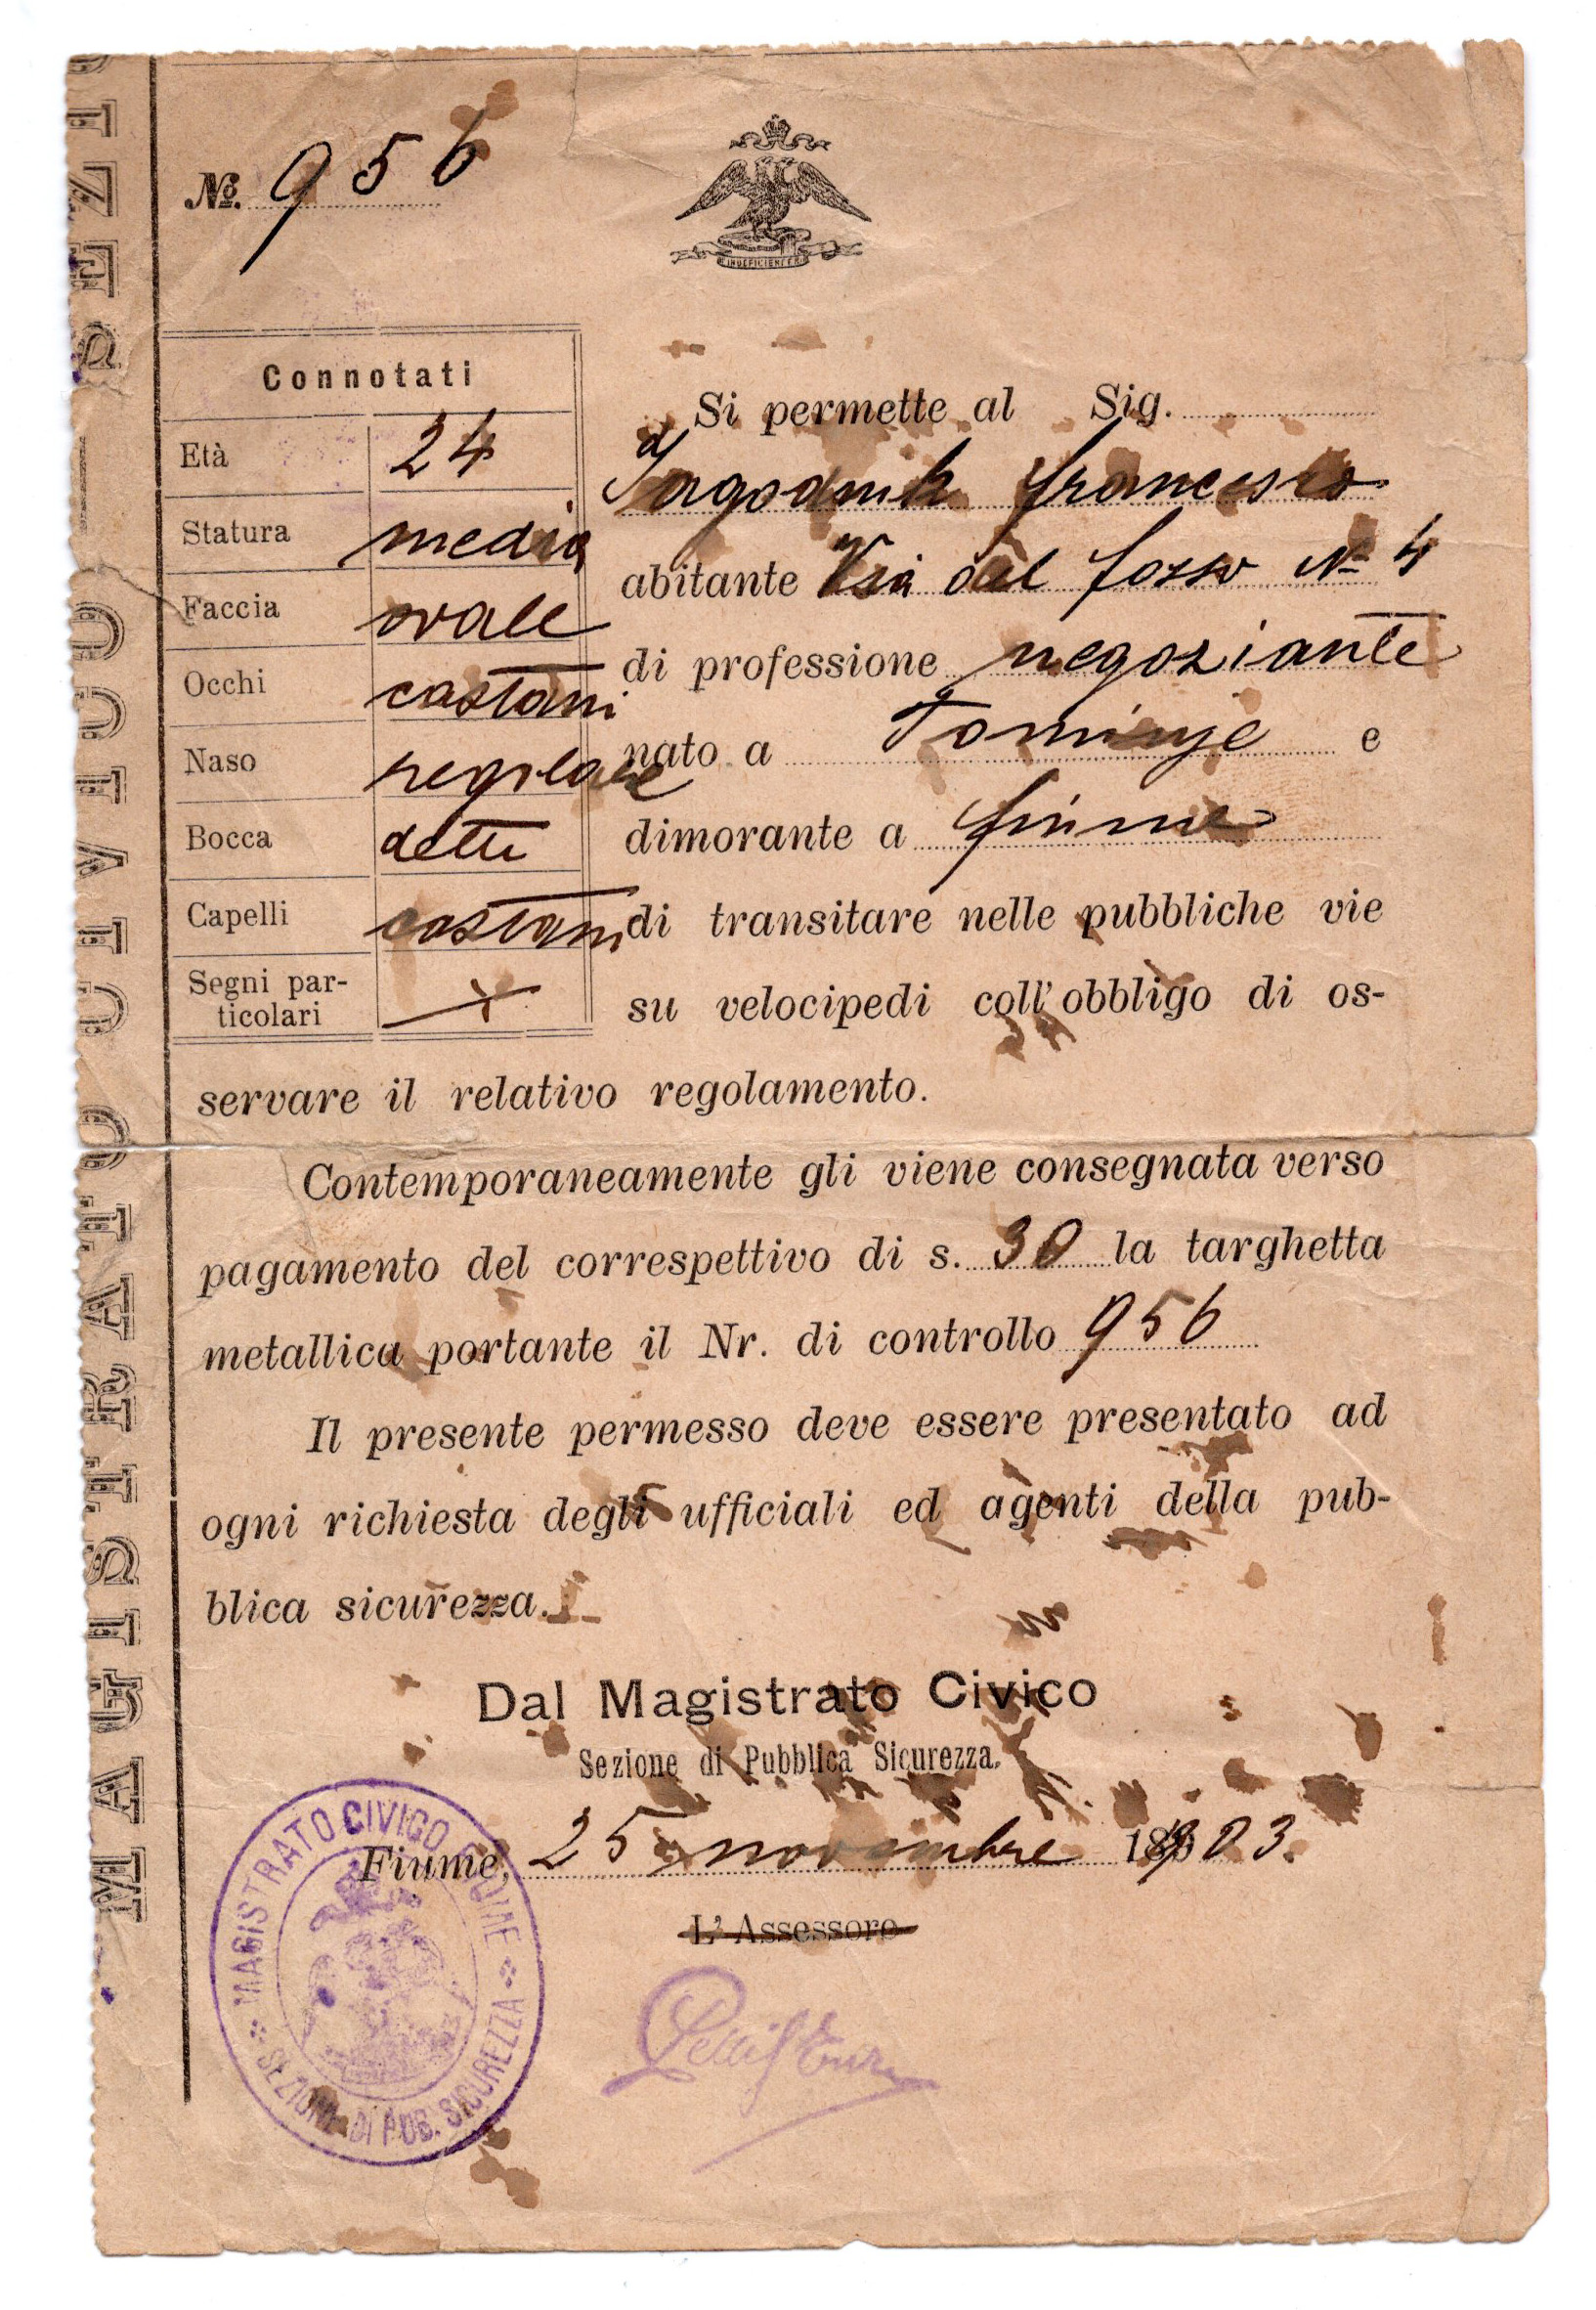 MAGISTRATO CIVICO
SPEZI
№. 956
INDEFICIENTER
Connotati
Età 24
Statura media
Faccia ovale
Occhi castani
Naso regolare
Bocca detti
Capelli castani
Segni par-
ticolari
Si permette al Sig.
Jagodnik Francesco
abitante Via del fosso № 4
di professione negoziante
nato a Tominje e
dimorante a fiume
di transitare nelle pubbliche vie
su velocipedi coll' obbligo di os-
servare il relativo regolamento.
Contemporaneamente gli viene consegnata verso
pagamento del correspettivo di s. 30 la targhetta
metallica portante il Nr. di controllo 956
Il presente permesso deve essere presentato ad
ogni richiesta degli ufficiali ed agenti della pub-
blica sicurezza.
Dal Magistrato Civico
Sezione di Pubblica Sicurezza.
Fiume, 25 novembre 1903.
L' Assessore
MAGISTRATO CIVICO FIUME
SEZIONE DI PUB. SICUREZZA